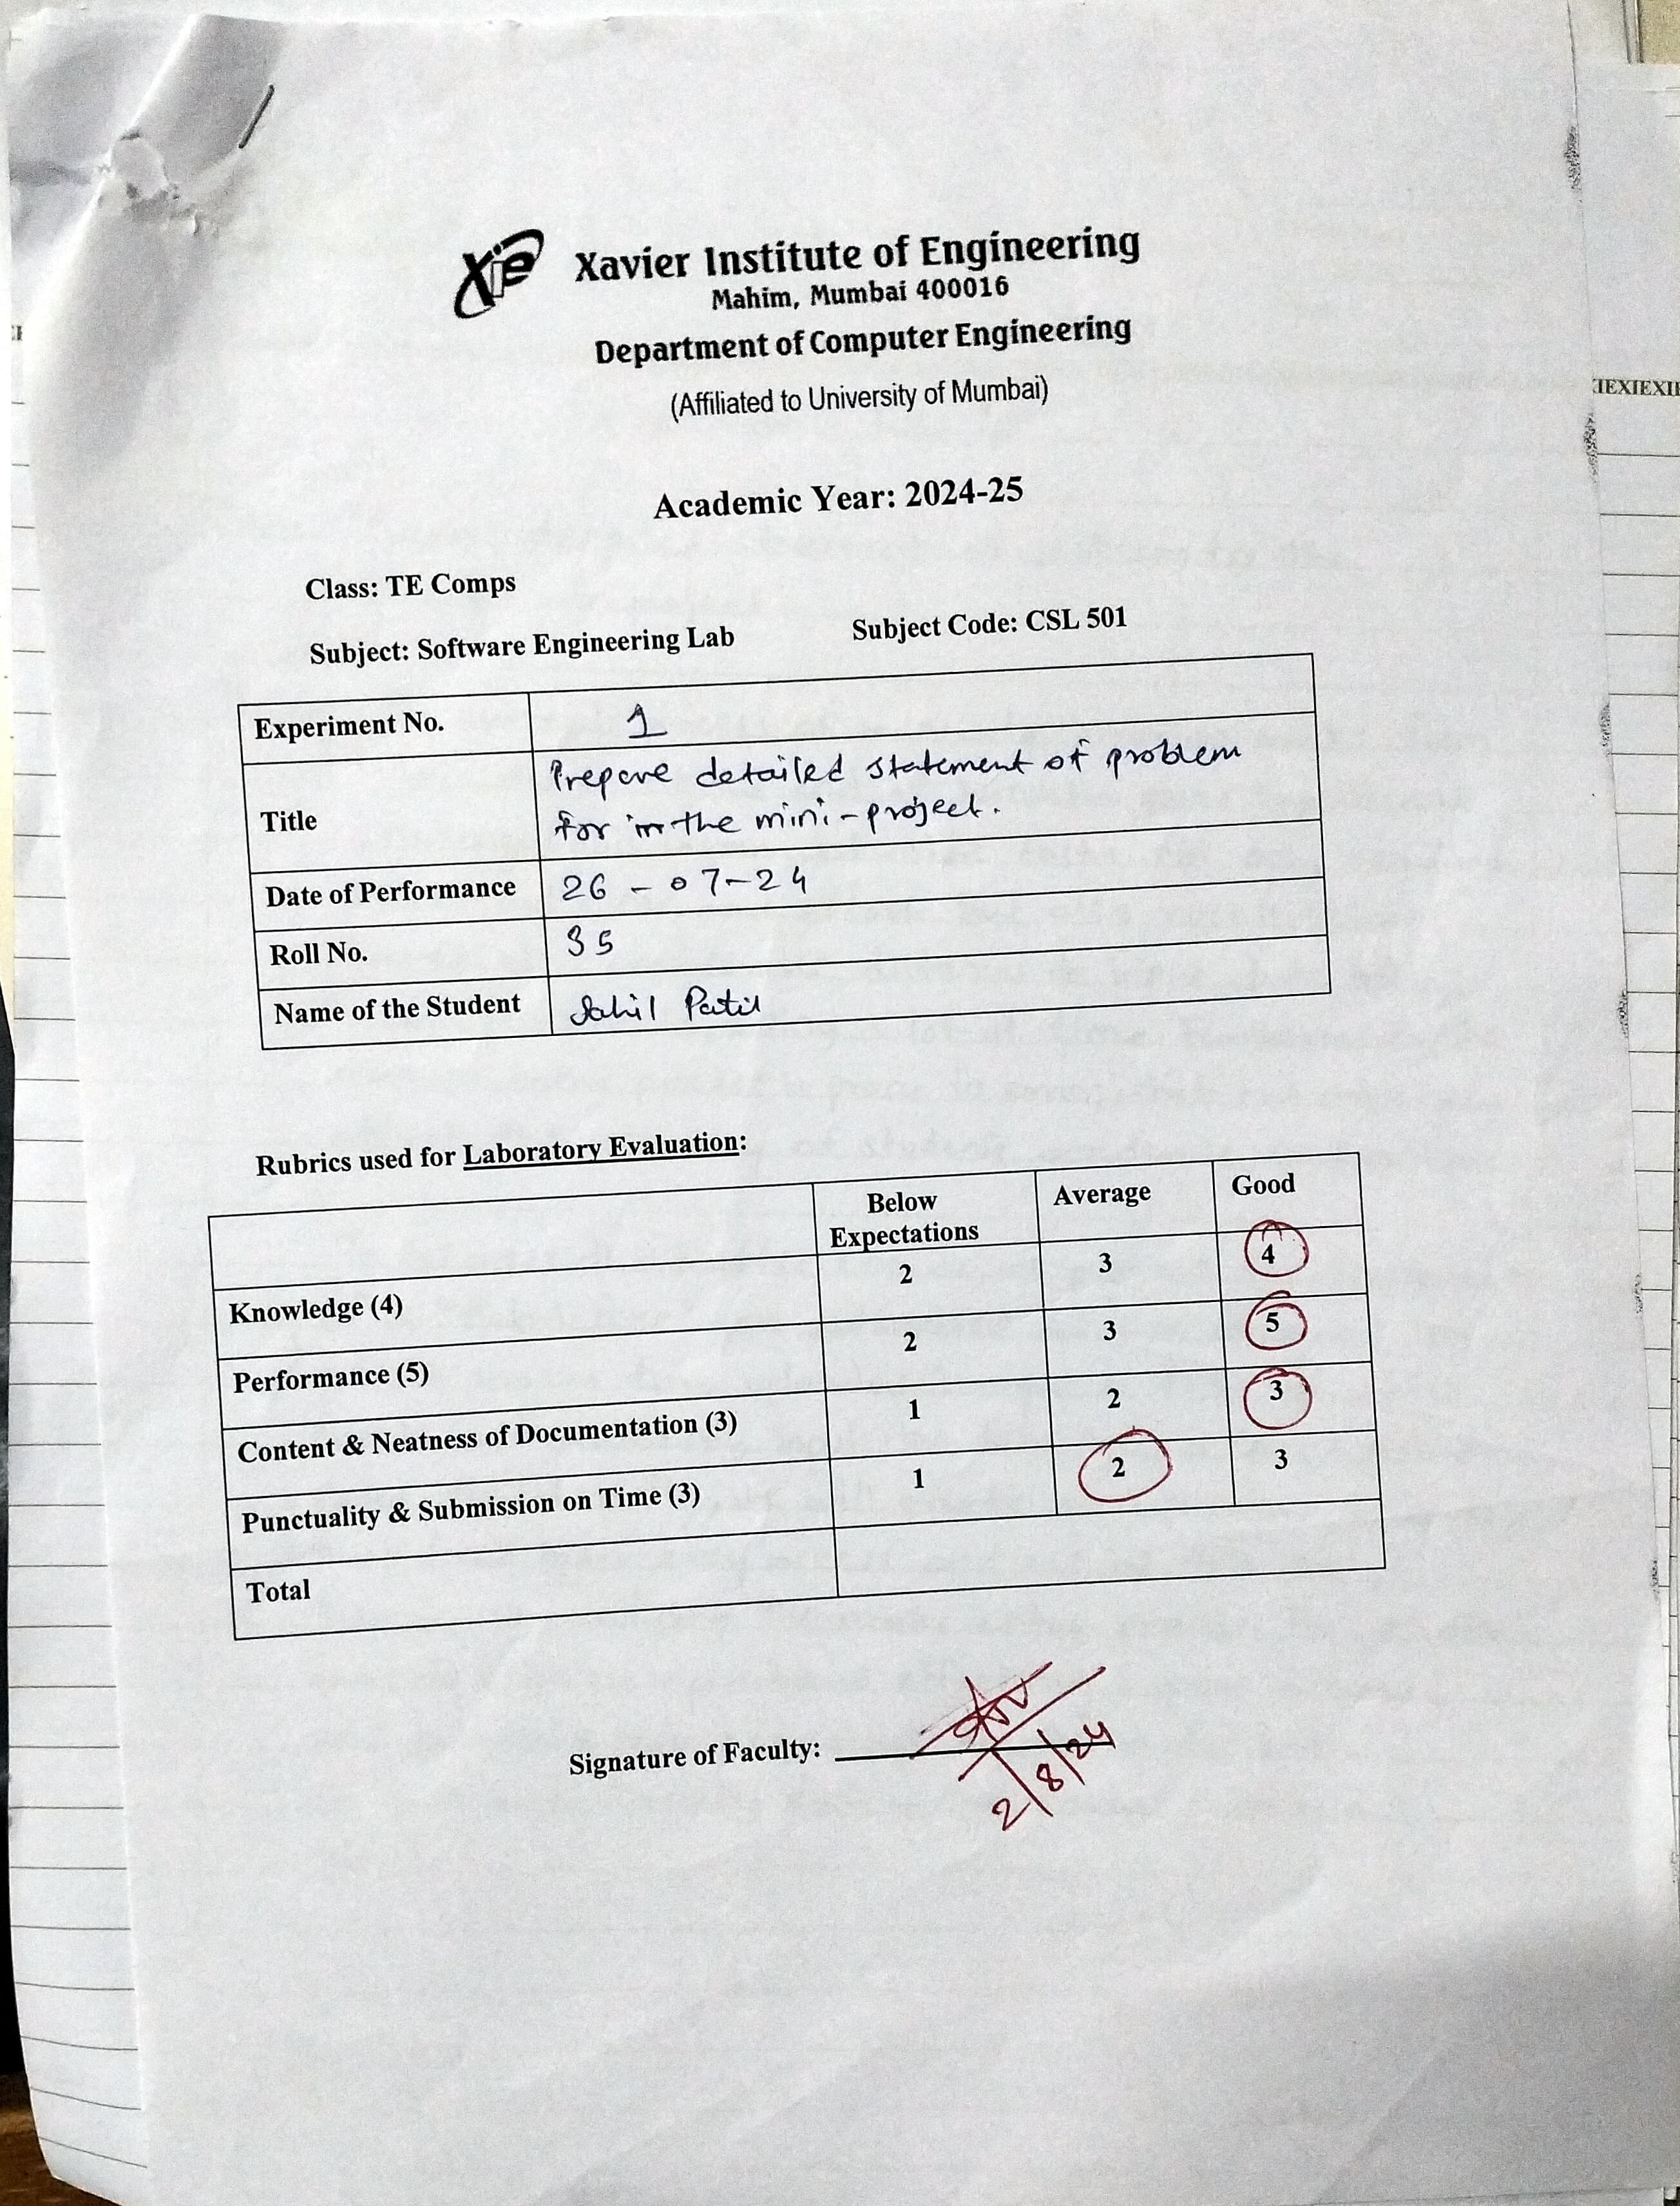 Xie Xavier Institute of Engineering
Mahim, Mumbai 400016
Department of Computer Engineering
(Affiliated to University of Mumbai)
Academic Year: 2024-25
Class: TE Comps
Subject: Software Engineering Lab Subject Code: CSL 501
Experiment No. 1
Title Prepare detailed statement of problem
for in the mini-project.
Date of Performance 26-07-24
Roll No. 35
Name of the Student Sahil Patil
Rubrics used for Laboratory Evaluation:
Below Expectations Average Good
Knowledge (4) 2 3 4
Performance (5) 2 3 5
Content & Neatness of Documentation (3) 1 2 3
Punctuality & Submission on Time (3) 1 2 3
Total
Signature of Faculty:
2/8/24
IEXIEXI